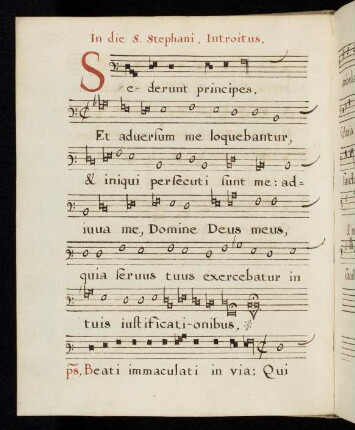 In die S. Stephani. Introitus.
Se- derunt principes,
Et aduersum me loquebantur,
& iniqui persecuti sunt me: ad=
iuua me, Domine Deus meus,
quia seruus tuus exercebatur in
tuis iustificati-onibus.
ps. Beati immaculati in via: Qui